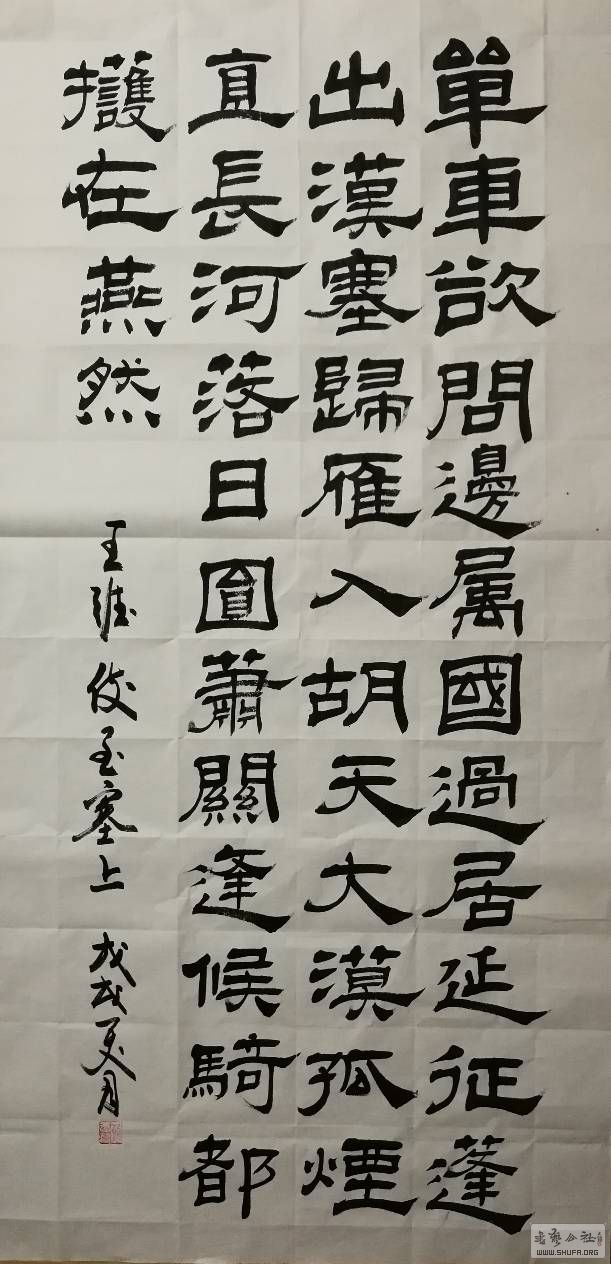 單車欲問邊属國過居延征蓬
出漢塞歸雁入胡天大漠孤煙
直長河落日圓蕭關逢候騎都
護在燕然
王維使至塞上 戊戌夏月
書藝公社
WWW.SHUFA.ORG